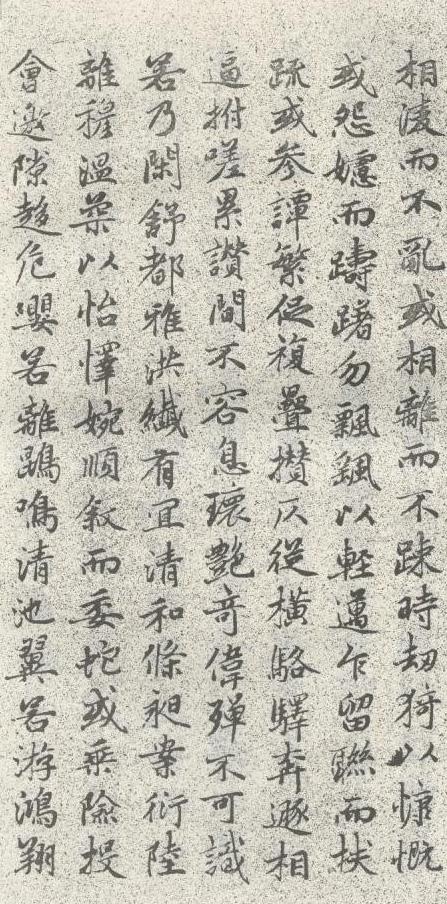 相淩而不亂或相離而不踈時刼掎以慷慨
或怨嫿而躊躇勿飄颻以輕邁乍留聮而扶
䟽或參譚繁促複疊攢仄從橫駱驛奔遯相
逼拊嗟累讃間不容息瓌艶奇偉殫不可識
若乃閑舒都雅洪纖有宜清和條昶案衍陸
離穆温柔以怡懌婉順叙而委虵或乗險投
會邀隙趍危嚶若離鵾鳴清池翼若游鴻翔